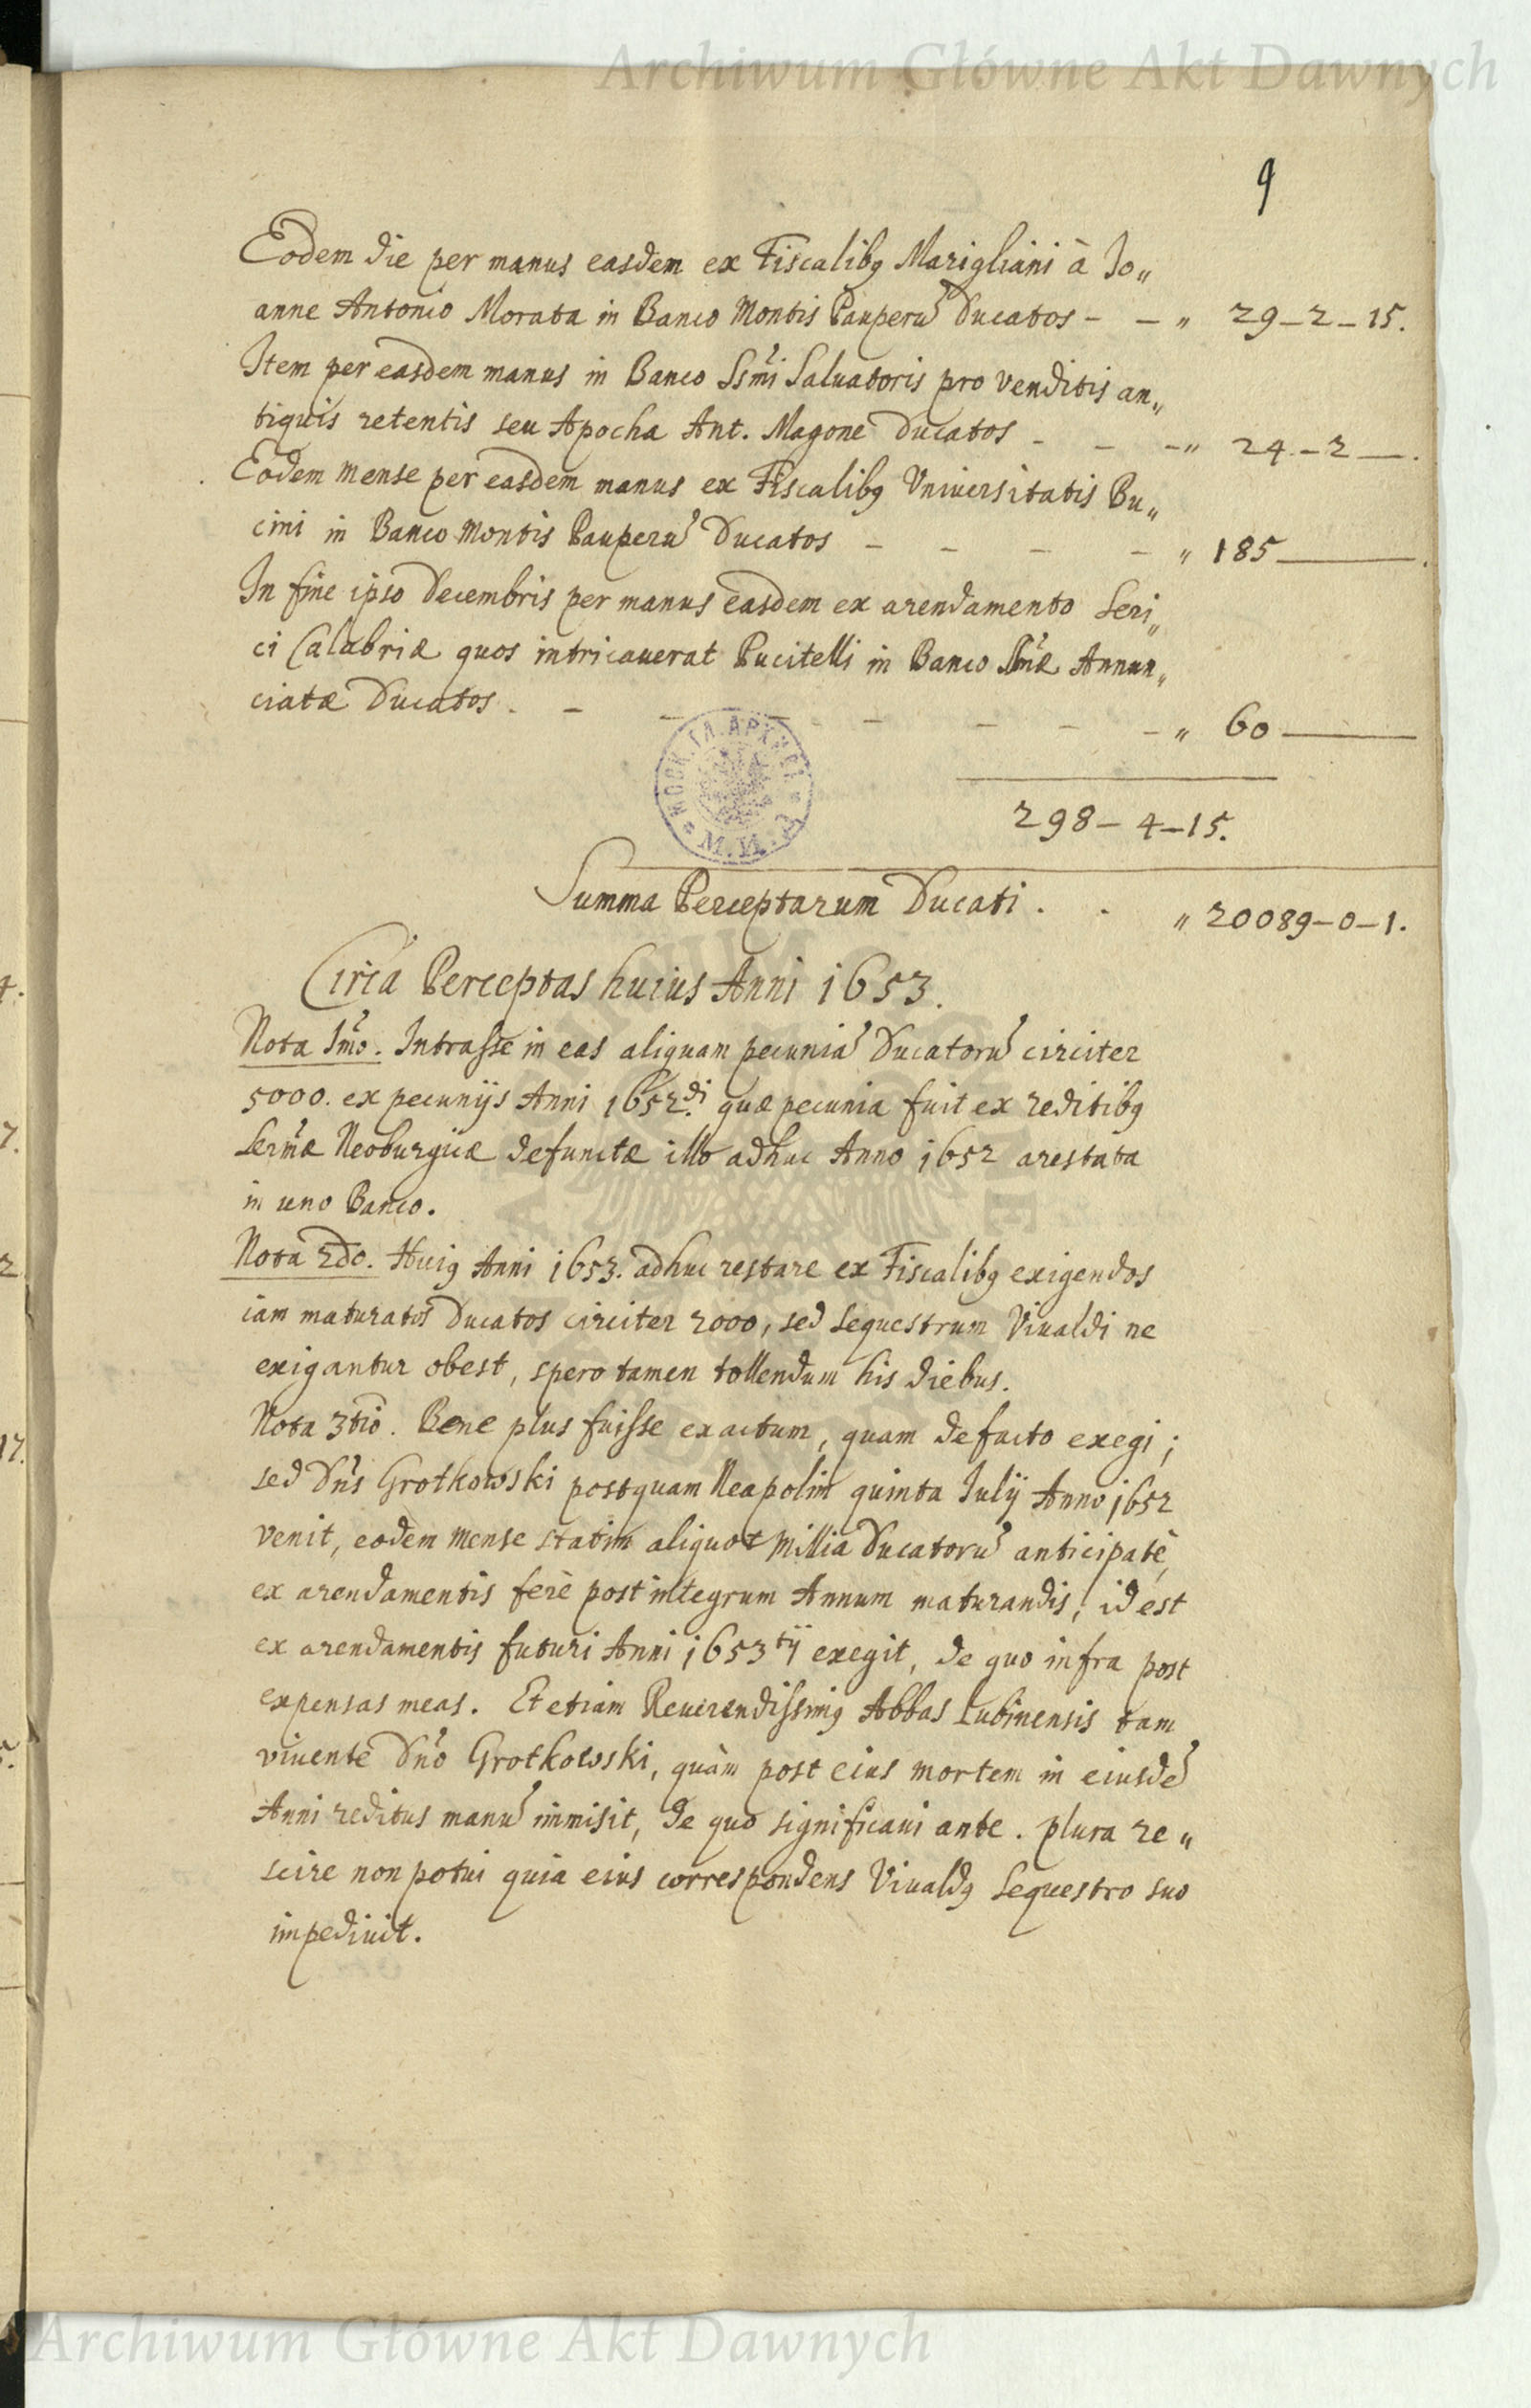 Archiwum Główne Akt Dawnych
9
Eodem die per manus easdem ex Fiscalibq Marigliani à Jo„
anne Antonio Morata in Banco Montis Pauperũ Ducatos - - „ 29-2-15.
Item per easdem manus in Banco Ssmi Saluatoris pro venditis an„
tiquis retentis seu Apocha Ant. Magone Ducatos - - -„ 24-2—.
Eodem mense per easdem manus ex Fiscalibq Vniuersitatis Bu„
cini in Banco Montis Pauperũ Ducatos - - - - „ 185——.
In fine ipso Decembris per manus easdem ex arendamento Seri„
ci Calabriæ quos intricauerat Pucitelli in Banco Smæ Annun„
ciatæ Ducatos. - - - - - - - -„ 60——
298-4-15.
Summa Perceptarum Ducati . . „ 20089-0-1.
Circa Perceptas huius Anni 1653.
Nota Imo. Intrasse in eas aliquam pecuniã Ducatorũ circiter
5000. ex pecunijs Anni 1652.di quæ pecunia fuit ex reditibq
Sermæ Neoburgicæ defunctæ illo adhuc Anno 1652 arestata
in uno Banco.
Nota 2do. Huiq Anni 1653. adhuc restare ex Fiscalibq exigendos
iam maturatos Ducatos circiter 2000, sed Sequestrum Viualdi ne
exigantur obest, spero tamen tollendum his diebus.
Nota 3tio. Bene plus fuisse exactum, quam de facto exegi;
sed Dns Grotkowski postquam Neapolim quinta Julij Anno 1652
venit, eodem mense statim aliquot millia Ducatorũ anticipatè,
ex arendamentis ferè post integrum Annum maturandis, id est
ex arendamentis futuri Anni 1653tij exegit, de quo infra post
expensas meas. Et etiam Reuerendissimq Abbas Lubinensis tam
viuente Dno Grotkowski, quàm post eius mortem in eiusdẽ
Anni reditus manũ immisit, de quo significaui ante. plura re„
scire non potui quia eius correspondens Viualdq Sequestro suo
impediuit.
Archiwum Główne Akt Dawnych